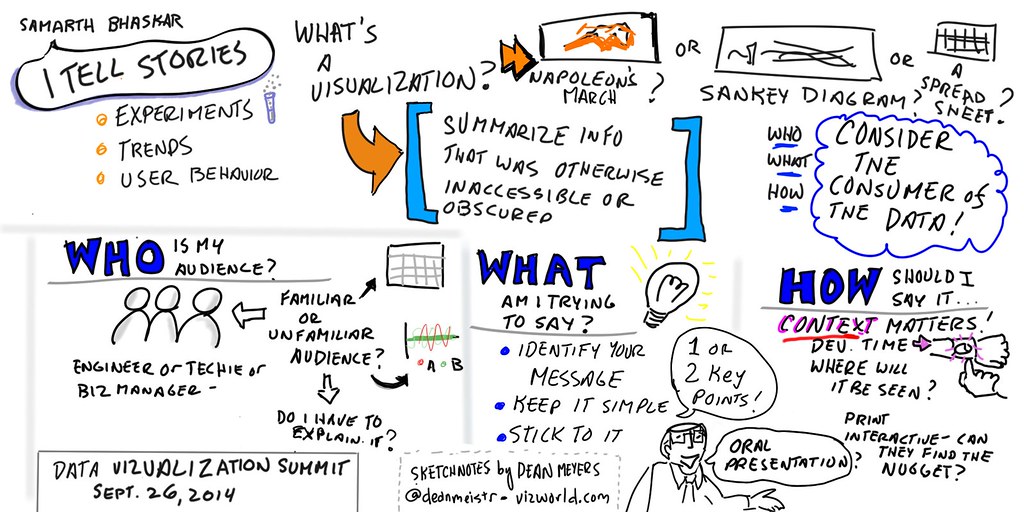 SAMARTH BHASKAR
I TELL STORIES
EXPERIMENTS
TRENDS
USER BEHAVIOR
WHAT'S
A
VISUALIZATION?
NAPOLEON'S
MARCH ?
OR
SANKEY DIAGRAM?
OR
A
SPREAD
SHEET?
SUMMARIZE INFO
THAT WAS OTHERWISE
INACCESSIBLE OR
OBSCURED
WHO
WHAT
HOW
CONSIDER
THE
CONSUMER of
THE DATA!
WHO IS MY
AUDIENCE?
ENGINEER OR TECHIE OR
BIZ MANAGER -
FAMILIAR
OR
UNFAMILIAR
AUDIENCE?
A B
DO I HAVE TO
EXPLAIN IT?
WHAT
AM I TRYING
TO SAY?
IDENTIFY YOUR
MESSAGE
KEEP IT SIMPLE
STICK TO IT
1 OR
2 KEY
POINTS!
HOW SHOULD I
SAY IT...
CONTEXT MATTERS!
DEV. TIME
WHERE WILL
IT BE SEEN?
PRINT
INTERACTIVE- CAN
THEY FIND THE
NUGGET?
ORAL
PRESENTATION?
DATA VIZUALIZATION SUMMIT
SEPT. 26, 2014
SKETCHNOTES by DEAN MEYERS
@deanmeistr - vizworld.com